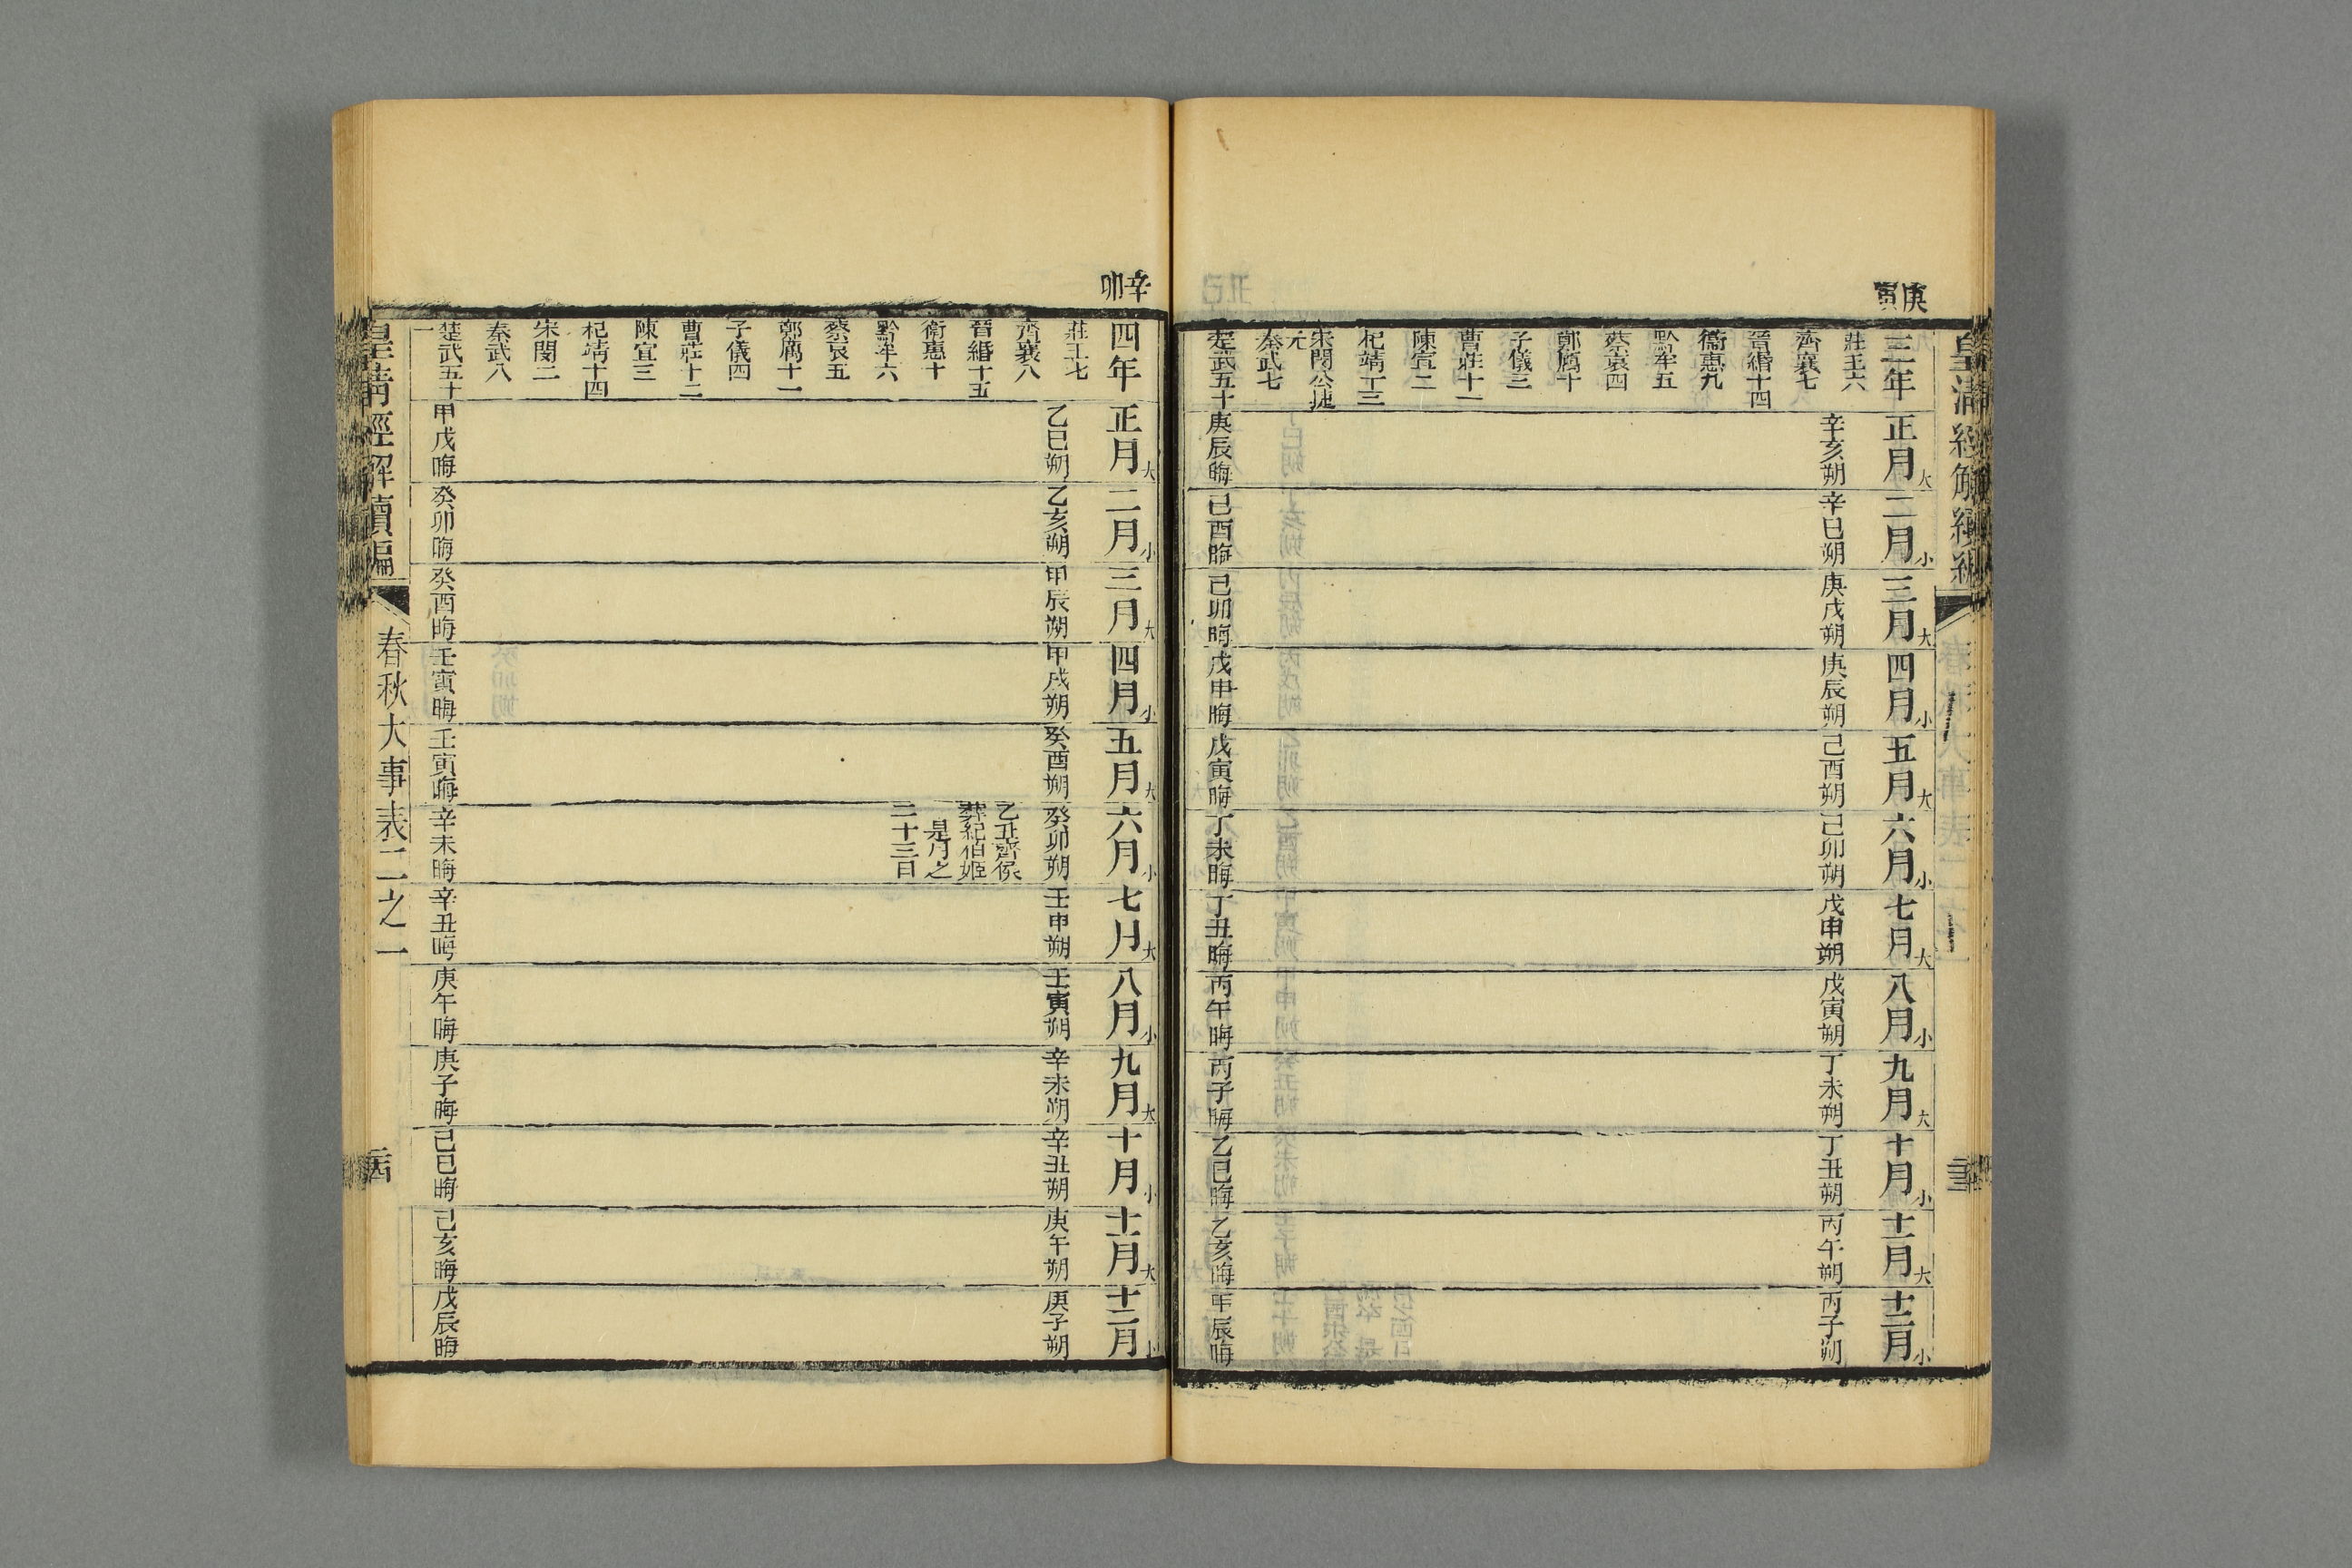 庚寅
三年
莊王六
齊襄七
晉緡十四
衞惠九
黔牟五
蔡哀四
鄭厲十
子儀三
曹莊十一
陳宣二
杞靖十三
宋閔公捷
元
秦武七
楚武五十
正月大
辛亥朔
庚辰晦
二月小
辛巳朔
己酉晦
三月大
庚戌朔
己卯晦
四月小
庚辰朔
戊申晦
五月大
己酉朔
戊寅晦
六月小
己卯朔
丁未晦
七月大
戊申朔
丁丑晦
八月小
戊寅朔
丙午晦
九月大
丁未朔
丙子晦
十月小
丁丑朔
乙巳晦
十一月大
丙午朔
乙亥晦
十二月小
丙子朔
甲辰晦
辛卯
四年
莊王七
齊襄八
晉緡十五
衞惠十
黔牟六
蔡哀五
鄭厲十一
子儀四
曹莊十二
陳宣三
杞靖十四
宋閔二
秦武八
楚武五十
一
正月大
乙巳朔
甲戌晦
二月小
乙亥朔
癸卯晦
三月大
甲辰朔
癸酉晦
四月小
甲戌朔
壬寅晦
五月大
癸酉朔
壬寅晦
六月小
癸卯朔
乙丑齊侯
葬紀伯姬
是月之
二十三日
辛未晦
七月大
壬申朔
辛丑晦
八月小
壬寅朔
庚午晦
九月大
辛未朔
庚子晦
十月小
辛丑朔
己巳晦
十一月大
庚午朔
己亥晦
十二月小
庚子朔
戊辰晦
皇清經解續編
春秋大事表二之一